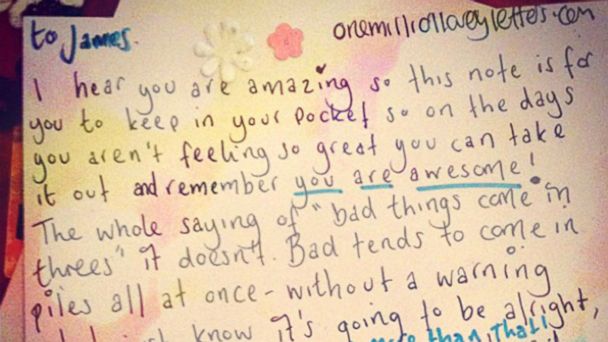 to James.
onemillionloveyletters.com
I hear you are amazing so this note is for
you to keep in your pocket so on the days
you aren't feeling so great you can take
it out and remember you are awesome!
The whole saying of "bad things come in
threes" it doesn't. Bad tends to come in
piles all at once - without a warning
just know it's going to be alright,
more than that!